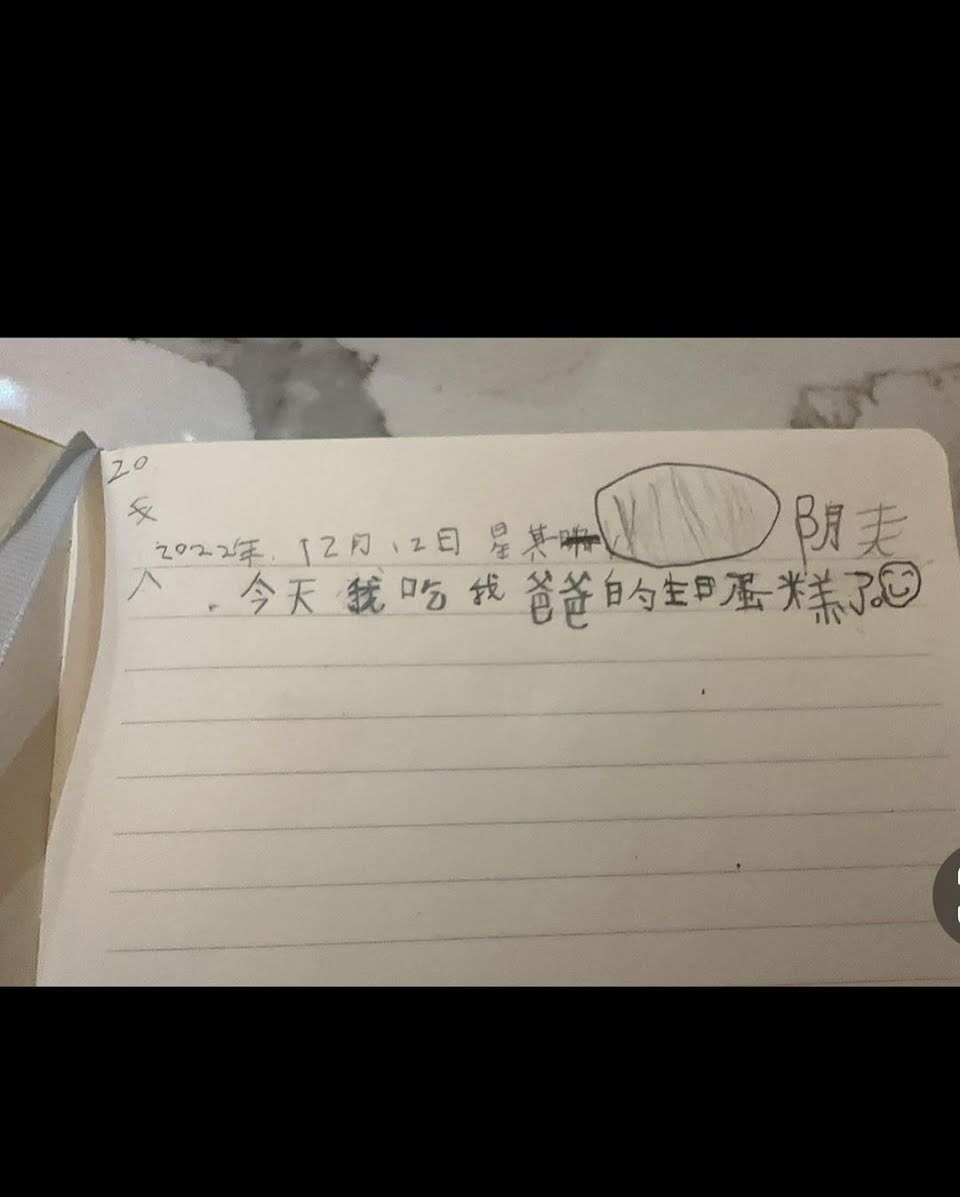 20
2022年.12月12日 星其 阴天
人
.今天我吃我爸爸的生日蛋糕了。